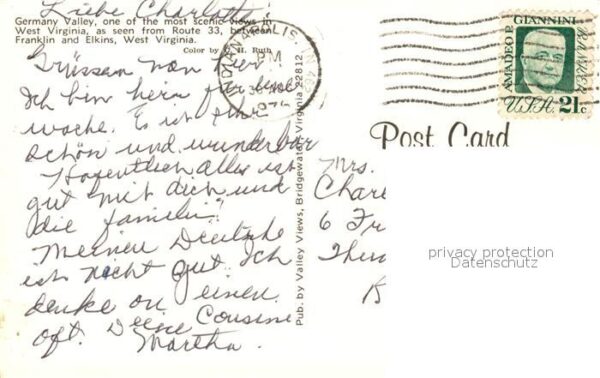 Liebe Charlotte:
Germany Valley, one of the most scenic views in
West Virginia, as seen from Route 33, between
Franklin and Elkins, West Virginia.
Color by H. Ruth
Grüssen von hier.
Ich bin hern für eine
woche. Es ist sehr
schön und wunderbar
Hofentlich alles ist
gut mit dich und
die familie.
Meinen Deutsche
ist nicht gut. Ich
denke on einen
oft. Deine Cousine
Martha.
Pub. by Valley Views, Bridgewater, Virginia 22812
INDIANAPOLIS, IN
PM
AMADEO P. GIANNINI
BANKER
U.S.A. 21c
Post Card
Mrs.
Char
6 Fr
privacy protection
Datenschutz